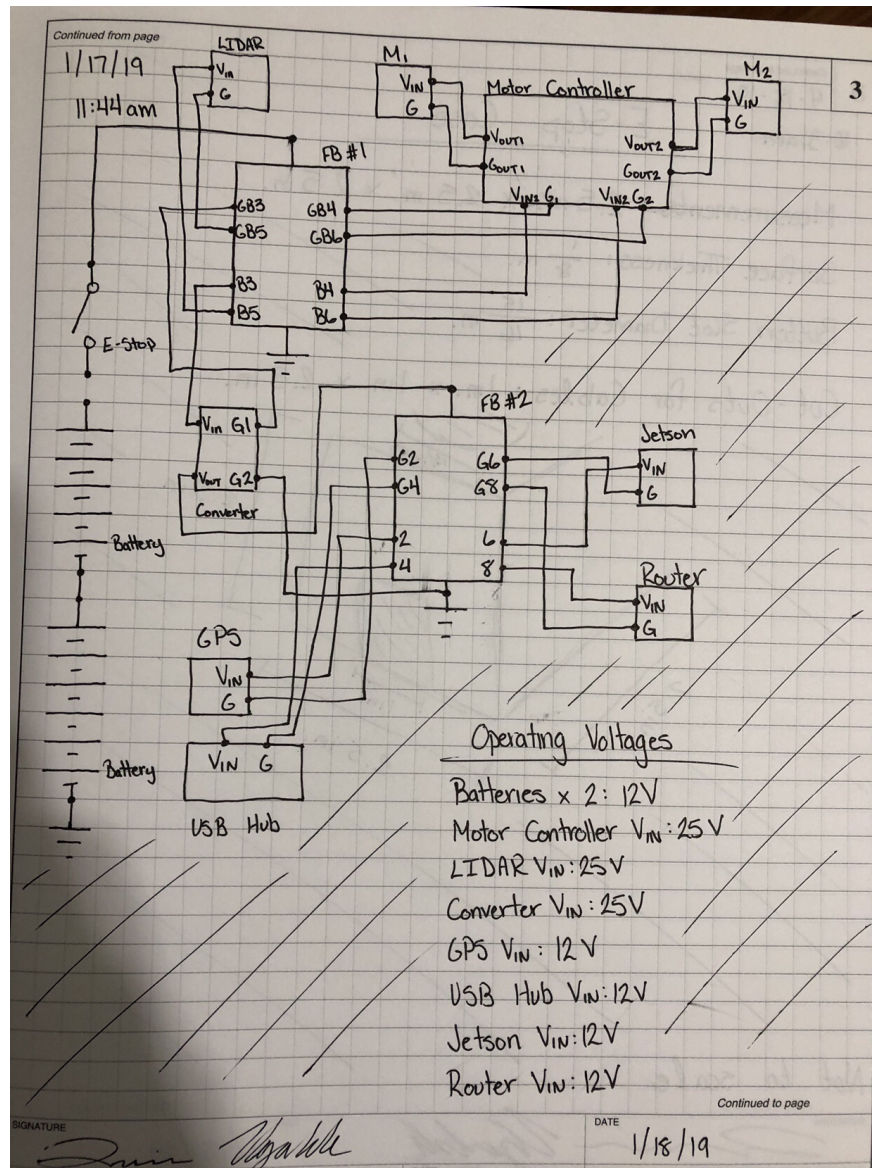 Continued from page
3
1/17/19
11:44am
LIDAR
VIN
G
M1
VIN
G
Motor Controller
VOUT1
GOUT1
VOUT2
GOUT2
VIN2 G1
VIN2 G2
M2
VIN
G
FB #1
GB3
GB5
B3
B5
GB4
GB6
B4
B6
E-Stop
Vin G1
VOUT G2
Converter
FB #2
G2
G4
2
4
G6
G8
6
8
Jetson
VIN
G
Router
VIN
G
Battery
GPS
VIN
G
Battery
VIN G
USB Hub
Operating Voltages
Batteries x 2: 12V
Motor Controller VIN: 25V
LIDAR VIN: 25V
Converter VIN: 25V
GPS VIN: 12V
USB Hub VIN: 12V
Jetson VIN: 12V
Router VIN: 12V
Continued to page
SIGNATURE
DATE
1/18/19